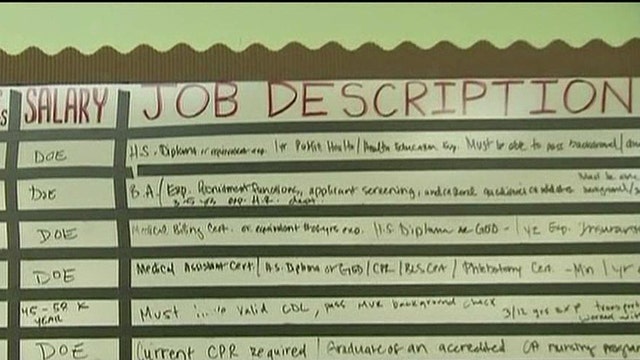 s SALARY JOB DESCRIPTION
DOE H.S. Diploma or equivalent exp. 1yr Public Health/Health Education Exp. Must be able to pass background/
Must be
DOE B.A/ Exp. Recruitment functions, applicant screening, background/
3-5 yrs exp. H.R. dept.
DOE Medical Billing Cert. or equivalent exp. H.S Diploma or GED - 1 yr Exp. Insurance
DOE Medical Assistant Cert/ H.S. Diploma or GED/CPR/BLS Cert/ Phlebotomy Cert. - Min 1 yr
45-58 K Must valid CDL, pass MVR background check 3/12 yrs exp
YEAR
DOE Current CPR required/ Graduate of an accredited nursing program